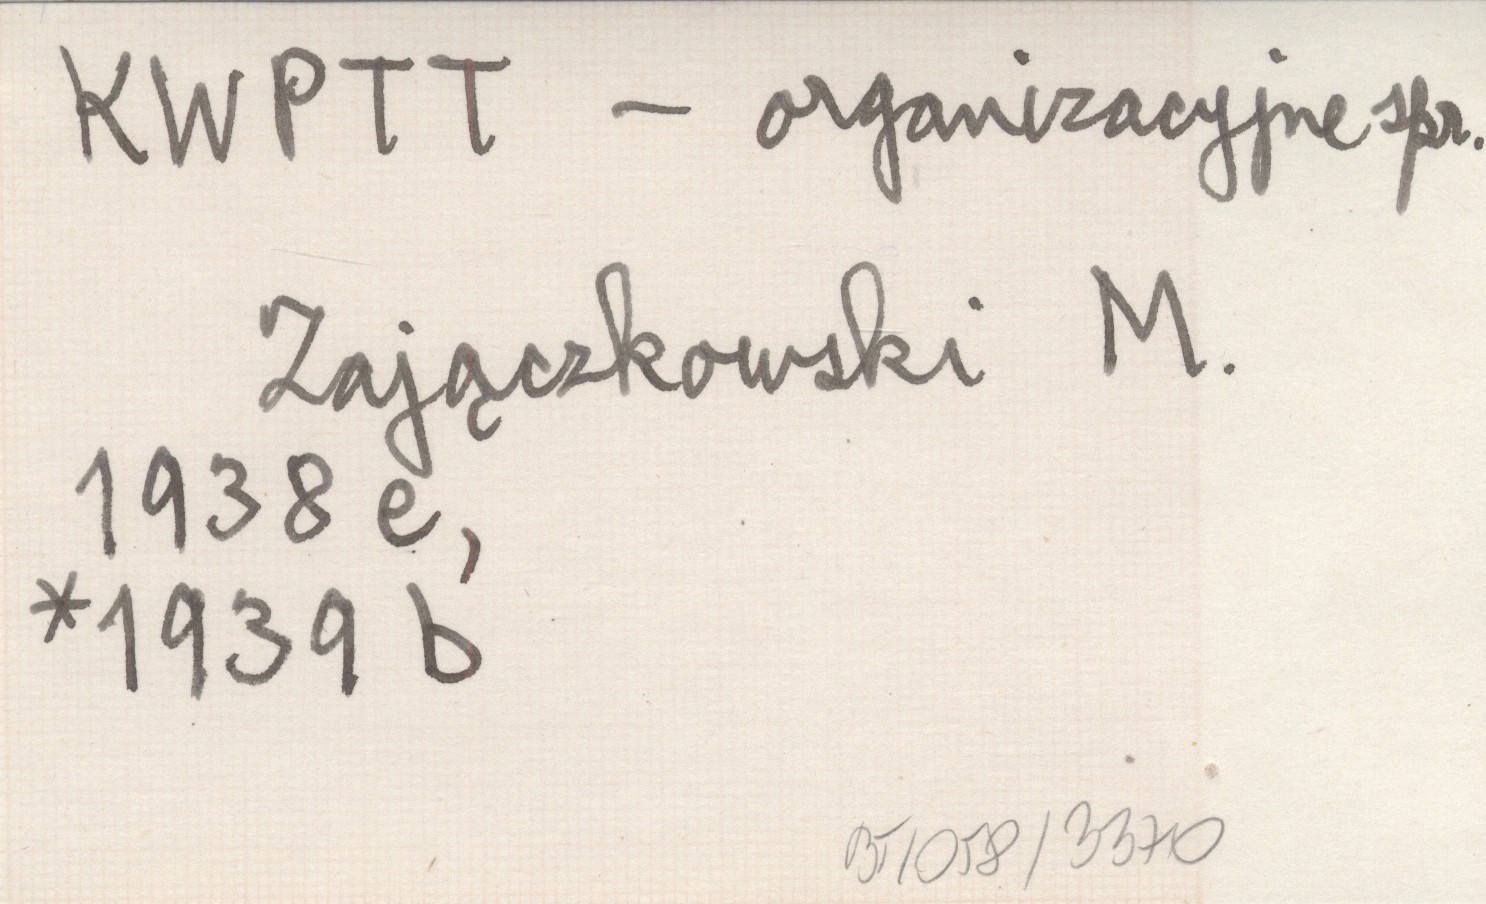 KWPTT – organizacyjne spr.
Zajączkowski M.
1938 e,
*1939 b
BT/058/3370